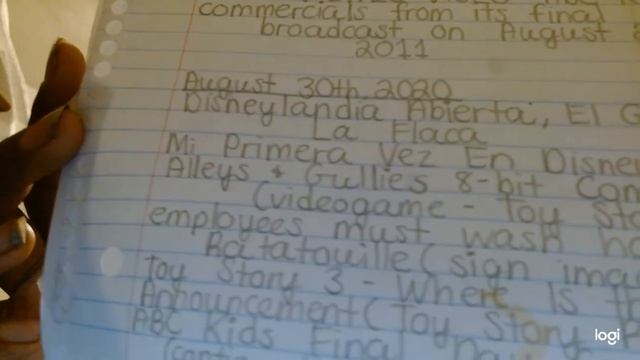 commercials from its final
broadcast on August
2011
August 30th 2020
Disneylandia Abierta, El
La Flaca
Mi Primera Vez En
Alleys & Gullies 8-bit
(videogame - Toy
employees must wash
Ratatouille (sign
Toy Story 3 - Where Is
Announcement (Toy Story
ABC Kids Final
logi